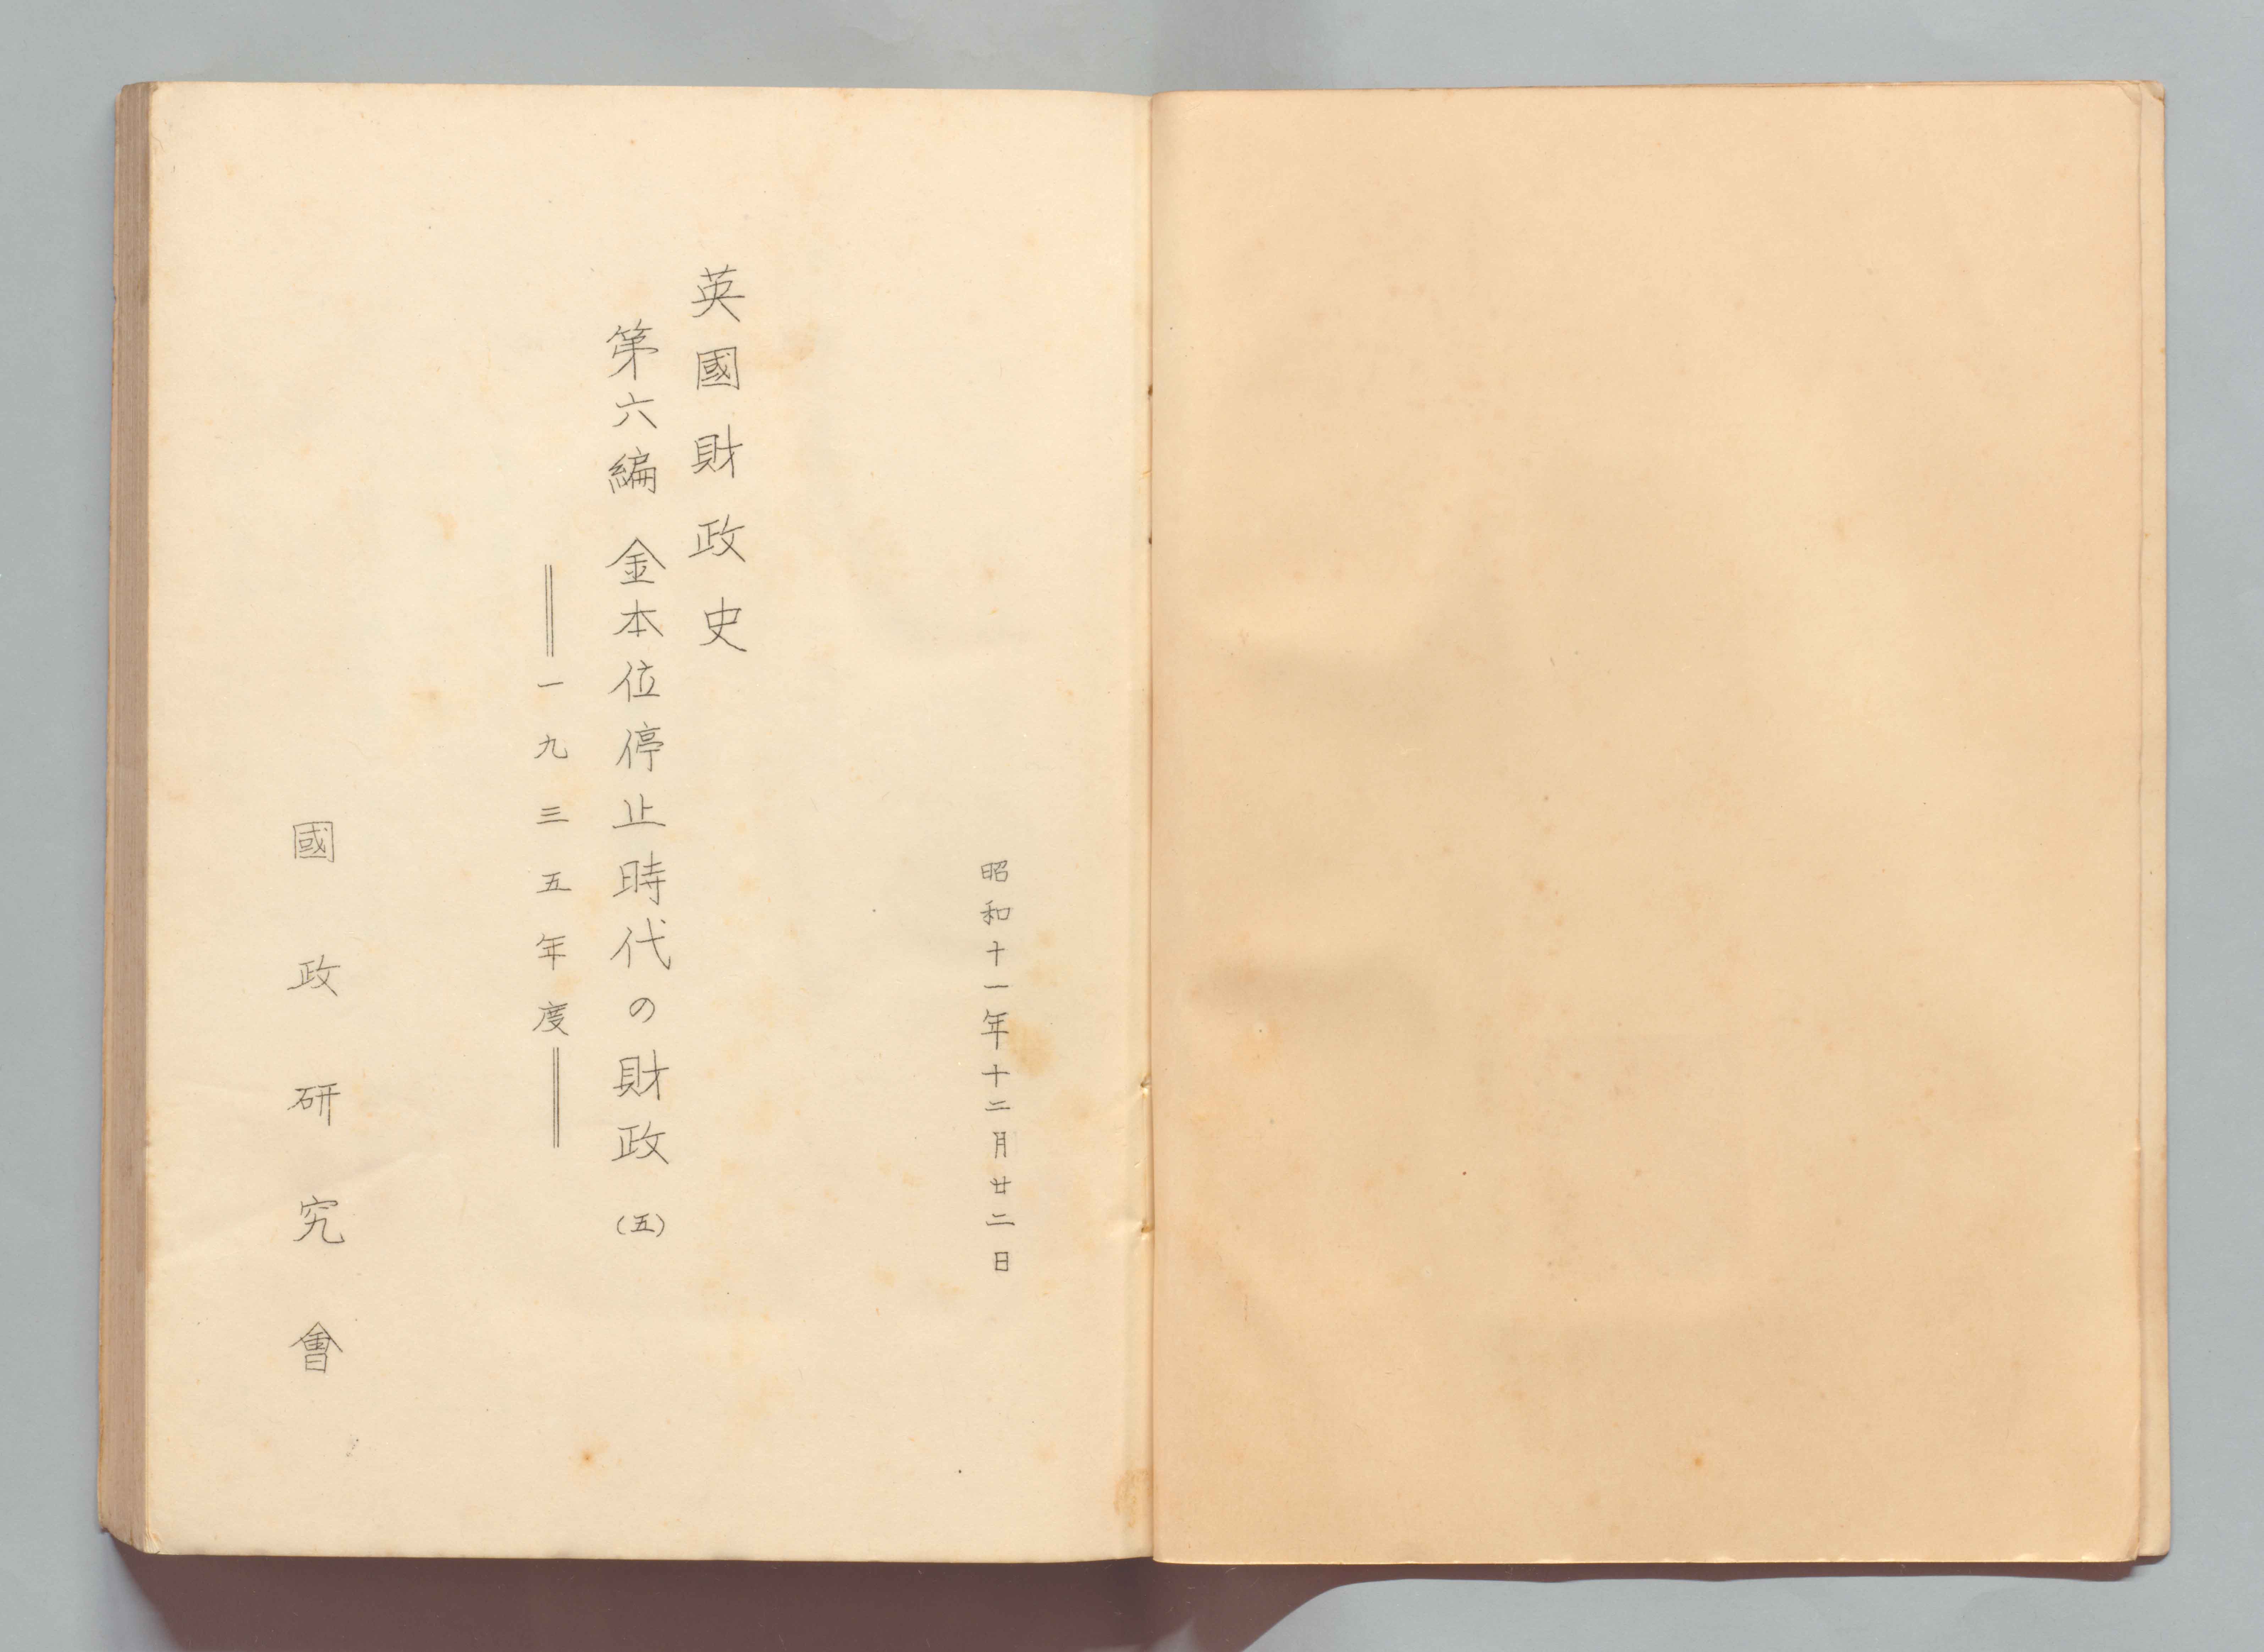 昭和十一年十二月廿二日
英國財政史
第六編 金本位停止時代の財政(五)
══一九三五年度══
國政研究會